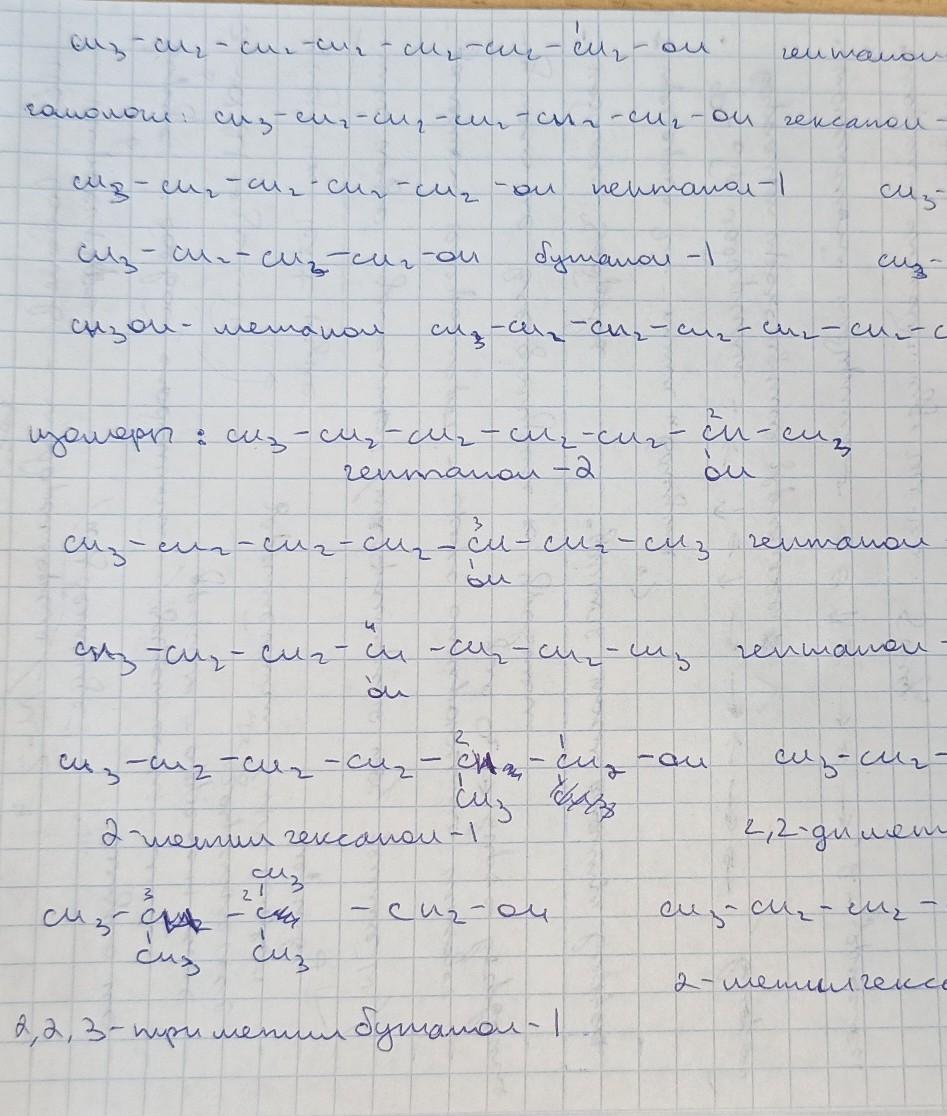 CH3-CH2-CH2-CH2-CH2-CH2-CH2-OH гептанол
1
гомологи: CH3-CH2-CH2-CH2-CH2-CH2-OH гексанол-
CH3-CH2-CH2-CH2-CH2-OH пентанол-1 CH3-
CH3-CH2-CH2-CH2-OH бутанол-1 CH3-
CH3OH- метанол CH3-CH2-CH2-CH2-CH2-CH2-C
2
изомеры: CH3-CH2-CH2-CH2-CH2-CH-CH3
гептанол-2 OH
3
CH3-CH2-CH2-CH2-CH-CH2-CH3 гептанол
OH
4
CH3-CH2-CH2-CH-CH2-CH2-CH3 гептанол-
OH
2 1
CH3-CH2-CH2-CH2-CH-CH2-OH CH3-CH2-
CH3
2-метилгексанол-1 2,2-димет
CH3
3 2
CH3-C-C-CH2-OH CH3-CH2-CH2-
CH3 CH3
2-метилгекс
2,2,3-триметилбутанол-1